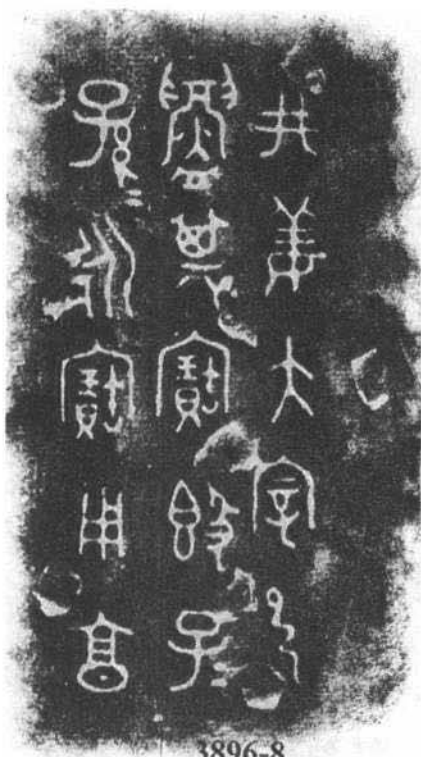 井姜大宰
鑄其寶簋子
孫=永寶用享
3896-8